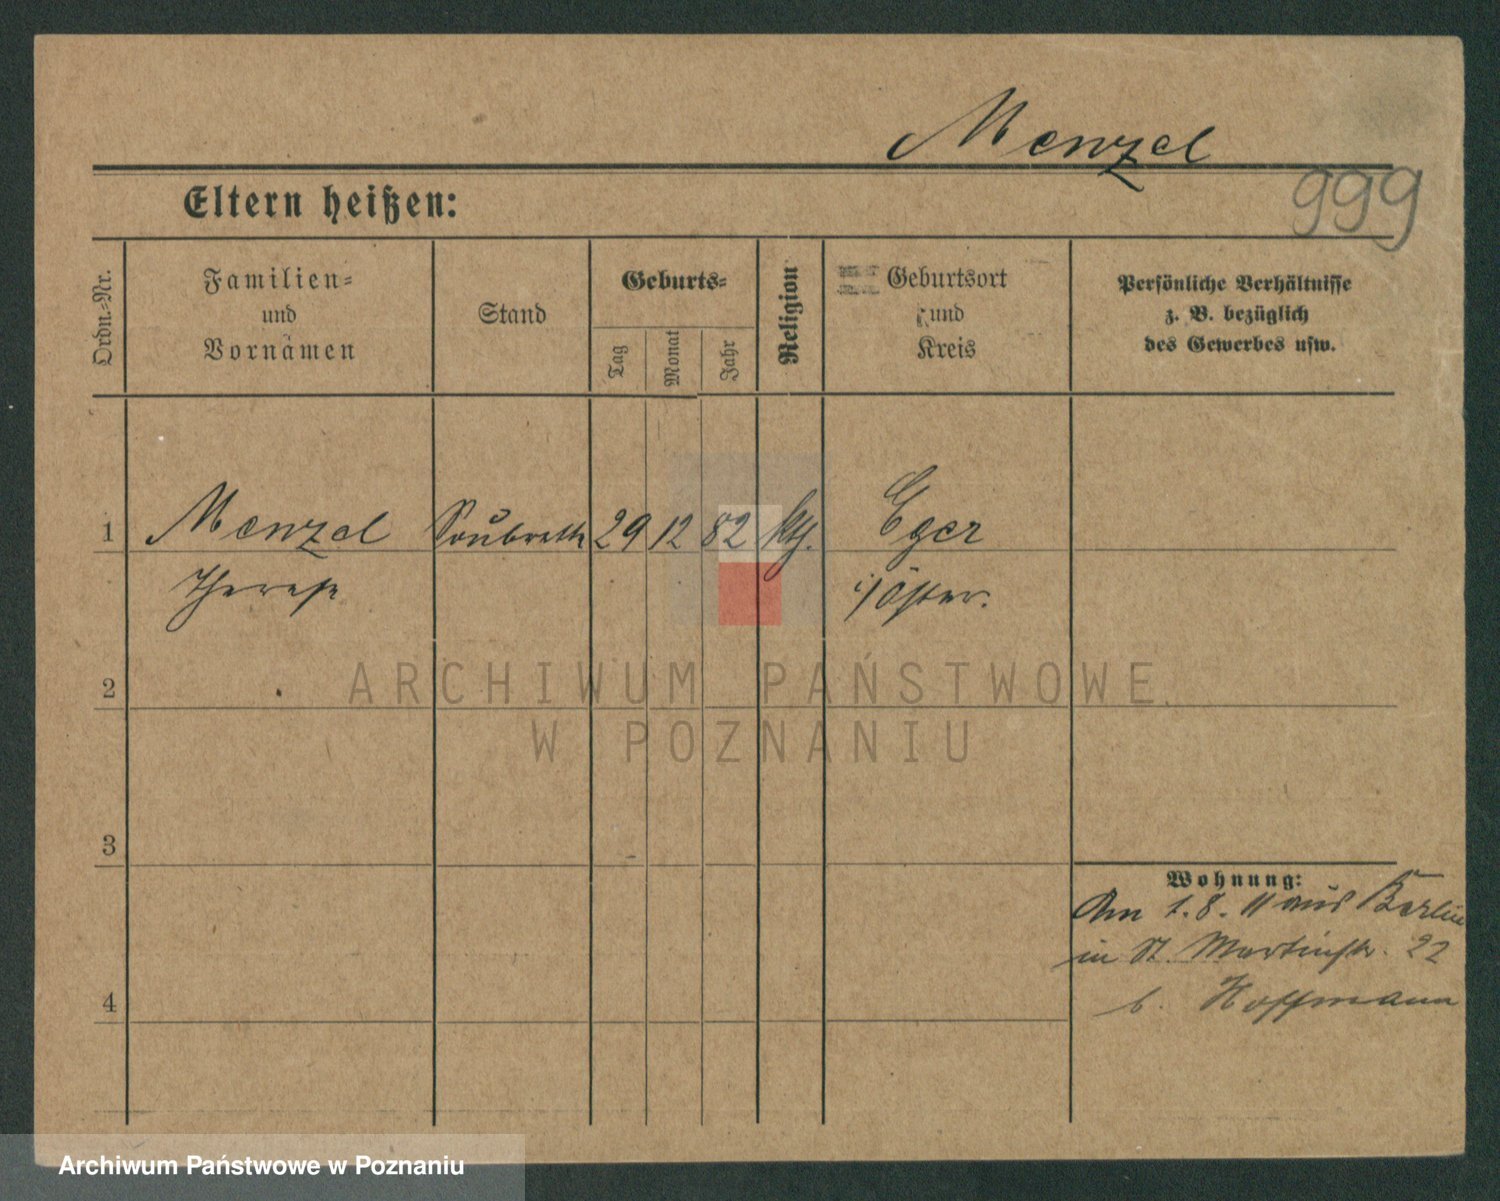 Menzel
999
Eltern heißen:
Ordn.-Nr.
Familien-
und
Vornamen
Stand
Geburts-
Tag
Monat
Jahr
Religion
Geburtsort
und
Kreis
Persönliche Verhältnisse
z. B. bezüglich
des Gewerbes usw.
1
Menzel
Soubrette
29
12
82
kth.
Eger
Therese
i/Öster.
2
ARCHIWUM PAŃSTWOWE
W POZNANIU
3
Wohnung:
Am 1.8.11 aus Berlin
in St. Martinstr. 22
b. Hoffmann
4
Archiwum Państwowe w Poznaniu